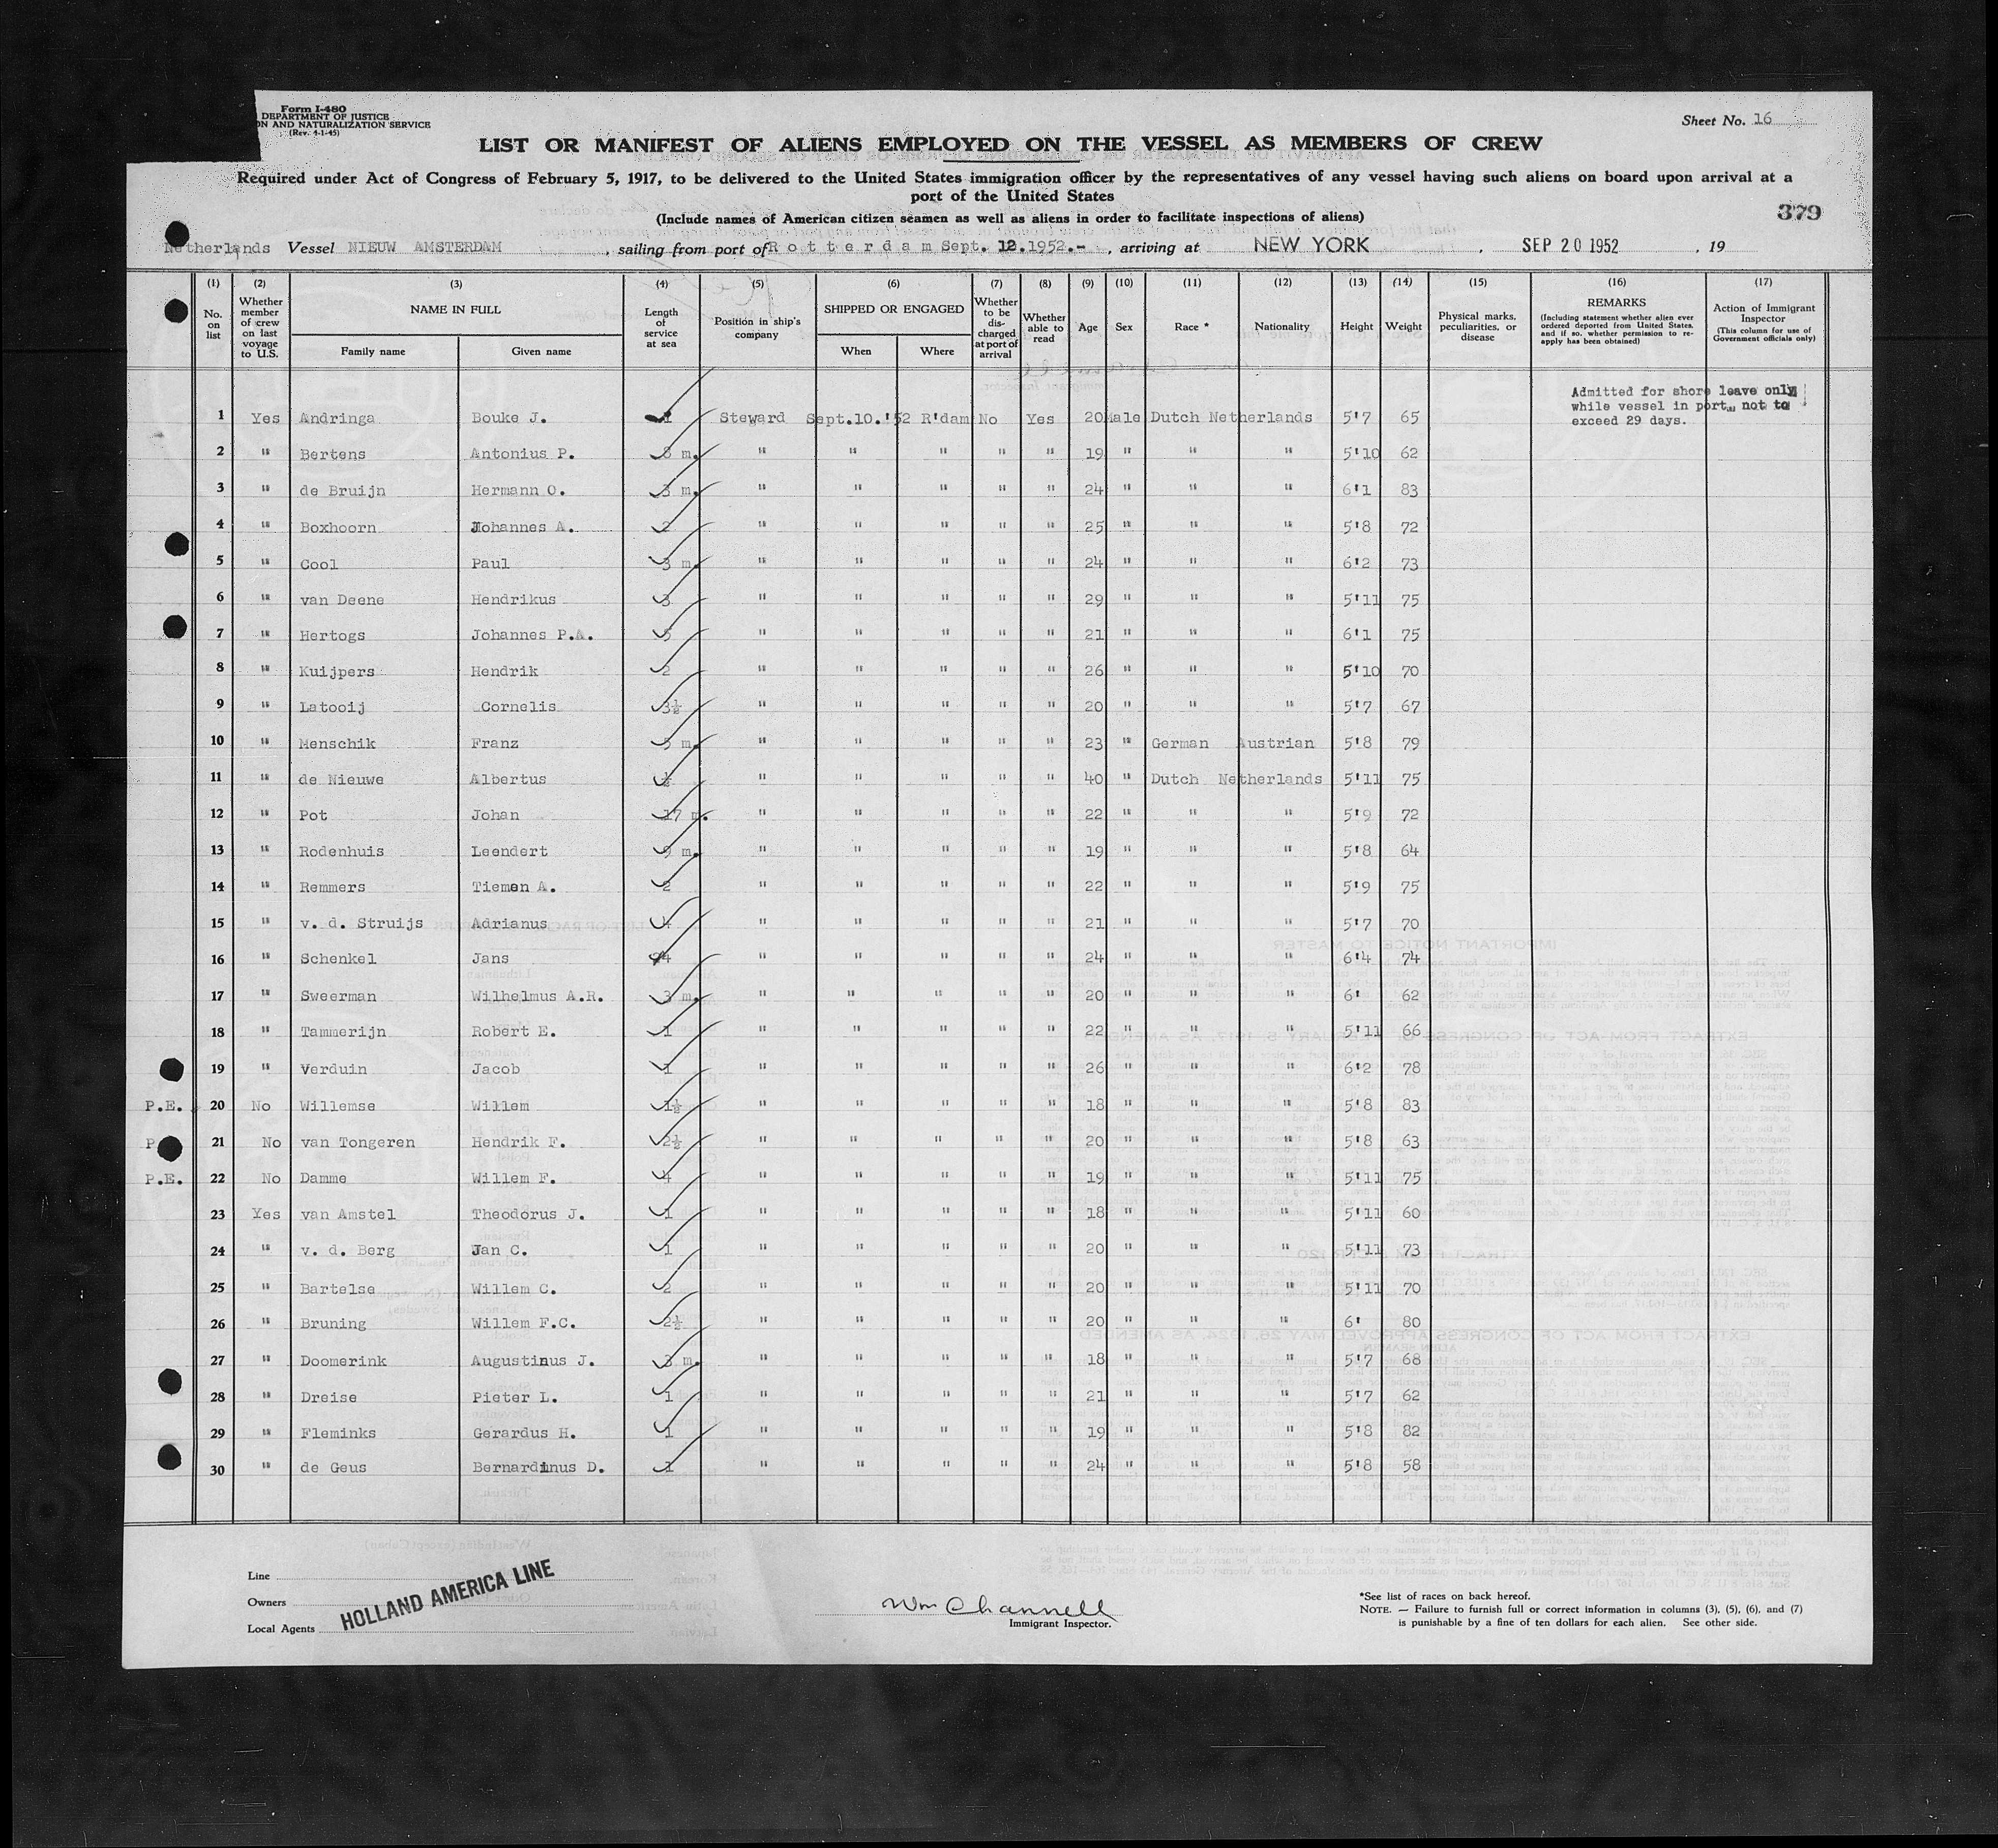 Form I-480
DEPARTMENT OF JUSTICE
ON AND NATURALIZATION SERVICE
(Rev. 4-1-45)
Sheet No. 16
LIST OR MANIFEST OF ALIENS EMPLOYED ON THE VESSEL AS MEMBERS OF CREW
Required under Act of Congress of February 5, 1917, to be delivered to the United States immigration officer by the representatives of any vessel having such aliens on board upon arrival at a
port of the United States
(Include names of American citizen seamen as well as aliens in order to facilitate inspections of aliens)
379
Netherlands Vessel NIEUW AMSTERDAM , sailing from port of Rotterdam Sept. 12.1952.- , arriving at NEW YORK , SEP 20 1952 , 19
(1) (2) (3) (4) (5) (6) (7) (8) (9) (10) (11) (12) (13) (14) (15) (16) (17)
No. on list
Whether member of crew on last voyage to U.S.
NAME IN FULL
Family name Given name
Length of service at sea
Position in ship's company
SHIPPED OR ENGAGED
When Where
Whether to be dis-charged at port of arrival
Whether able to read
Age Sex Race * Nationality Height Weight
Physical marks, peculiarities, or disease
REMARKS
(Including statement whether alien ever ordered deported from United States, and if so, whether permission to re-apply has been obtained)
Action of Immigrant Inspector
(This column for use of Government officials only)
Admitted for shore leave only
while vessel in port, not to
exceed 29 days.
1 Yes Andringa Bouke J. 1 Steward Sept.10.'52 R'dam No Yes 20 Male Dutch Netherlands 5'7 65
2 " Bertens Antonius P. 8 m. " " " " " 19 " " " 5'10 62
3 " de Bruijn Hermann O. 3 m. " " " " " 24 " " " 6'1 83
4 " Boxhoorn Johannes A. 2 " " " " " 25 " " " 5'8 72
5 " Cool Paul 3 m. " " " " " 24 " " " 6'2 73
6 " van Deene Hendrikus 3 " " " " " 29 " " " 5'11 75
7 " Hertogs Johannes P.A. 5 " " " " " 21 " " " 6'1 75
8 " Kuijpers Hendrik 2 " " " " " 26 " " " 5'10 70
9 " Latooij Cornelis 3½ " " " " " 20 " " " 5'7 67
10 " Menschik Franz 5 m. " " " " " 23 " German Austrian 5'8 79
11 " de Nieuwe Albertus ½ " " " " " 40 " Dutch Netherlands 5'11 75
12 " Pot Johan 17 m. " " " " " 22 " " " 5'9 72
13 " Rodenhuis Leendert 9 m. " " " " " 19 " " " 5'8 64
14 " Remmers Tiemen A. 2 " " " " " 22 " " " 5'9 75
15 " v. d. Struijs Adrianus 4 " " " " " 21 " " " 5'7 70
16 " Schenkel Jans " " " " " 24 " " " 6'4 74
17 " Sweerman Wilhelmus A.R. 3 m. " " " " " 20 " " " 6' 62
18 " Tammerijn Robert E. 1 " " " " " 22 " " " 5'11 66
19 " Verduin Jacob 1 " " " " " 26 " " " 6'2 78
P.E. 20 No Willemse Willem 1½ " " " " " 18 " " " 5'8 83
P 21 No van Tongeren Hendrik F. 2½ " " " " " 20 " " " 5'8 63
P.E. 22 No Damme Willem F. 4 " " " " " 19 " " " 5'11 75
23 Yes van Amstel Theodorus J. 1 " " " " " 18 " " " 5'11 60
24 " v. d. Berg Jan C. 1 " " " " " 20 " " " 5'11 73
25 " Bartelse Willem C. 2 " " " " " 20 " " " 5'11 70
26 " Bruning Willem F.C. 2½ " " " " " 20 " " " 6' 80
27 " Doomerink Augustinus J. 3 m. " " " " " 18 " " " 5'7 68
28 " Dreise Pieter L. 1 " " " " " 21 " " " 5'7 62
29 " Fleminks Gerardus H. 1 " " " " " 19 " " " 5'8 82
30 " de Geus Bernardinus D. 1 " " " " " 24 " " " 5'8 58
Line
Owners
Local Agents
HOLLAND AMERICA LINE
Wm Channell
Immigrant Inspector.
*See list of races on back hereof.
NOTE. — Failure to furnish full or correct information in columns (3), (5), (6), and (7)
is punishable by a fine of ten dollars for each alien. See other side.